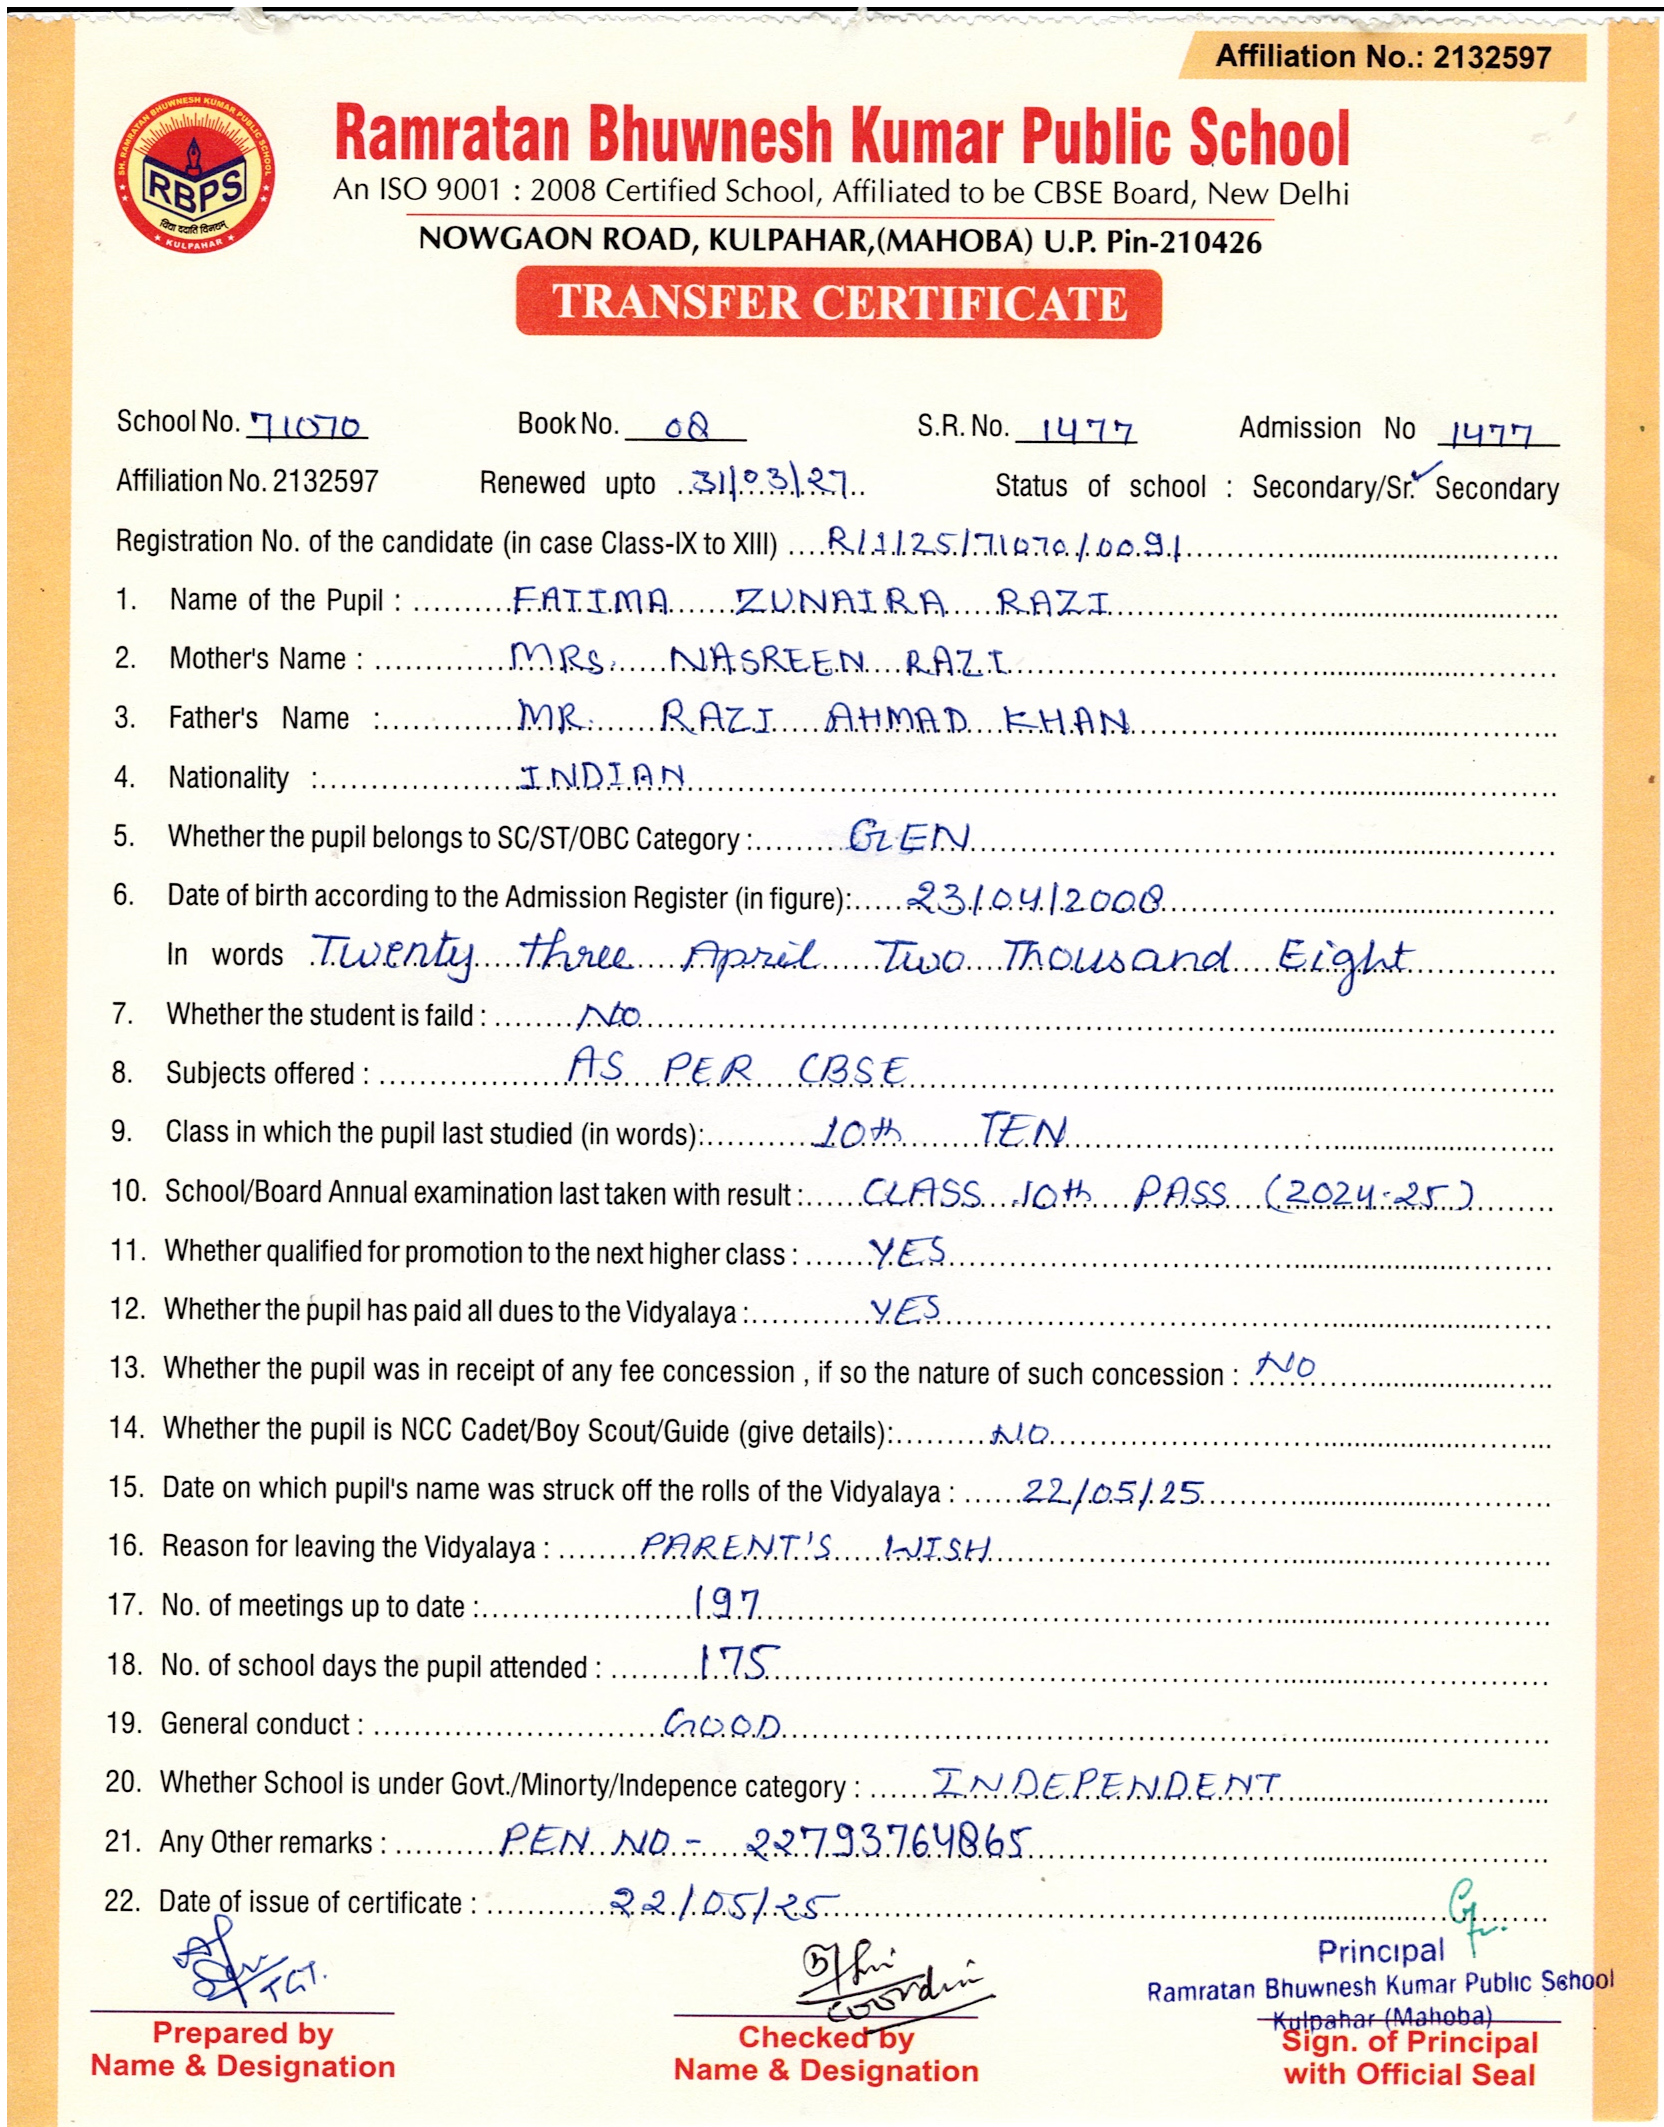 Affiliation No.: 2132597
SH. RAMRATAN BHUWNESH KUMAR PUBLIC SCHOOL
RBPS
विद्या ददाति विनयम्
★ KULPAHAR ★
Ramratan Bhuwnesh Kumar Public School
An ISO 9001 : 2008 Certified School, Affiliated to be CBSE Board, New Delhi
NOWGAON ROAD, KULPAHAR,(MAHOBA) U.P. Pin-210426
TRANSFER CERTIFICATE
School No. 71070 Book No. 08 S.R. No. 1477 Admission No 1477
Affiliation No. 2132597 Renewed upto 31/03/27 Status of school : Secondary/Sr. Secondary
Registration No. of the candidate (in case Class-IX to XIII) R/1/25/71070/0091
1. Name of the Pupil : FATIMA ZUNAIRA RAZI
2. Mother's Name : MRS. NASREEN RAZI
3. Father's Name : MR. RAZI AHMAD KHAN
4. Nationality : INDIAN
5. Whether the pupil belongs to SC/ST/OBC Category : GEN
6. Date of birth according to the Admission Register (in figure): 23/04/2008
In words Twenty three April Two Thousand Eight
7. Whether the student is faild : NO
8. Subjects offered : AS PER CBSE
9. Class in which the pupil last studied (in words): 10th TEN
10. School/Board Annual examination last taken with result : CLASS 10th PASS (2024-25)
11. Whether qualified for promotion to the next higher class : YES
12. Whether the pupil has paid all dues to the Vidyalaya : YES
13. Whether the pupil was in receipt of any fee concession , if so the nature of such concession : NO
14. Whether the pupil is NCC Cadet/Boy Scout/Guide (give details): NO
15. Date on which pupil's name was struck off the rolls of the Vidyalaya : 22/05/25
16. Reason for leaving the Vidyalaya : PARENT'S WISH
17. No. of meetings up to date : 197
18. No. of school days the pupil attended : 175
19. General conduct : GOOD
20. Whether School is under Govt./Minorty/Indepence category : INDEPENDENT
21. Any Other remarks : PEN NO - 22793764865
22. Date of issue of certificate : 22/05/25
TGT.
Principal
Ramratan Bhuwnesh Kumar Public School
Kulpahar (Mahoba)
Prepared by
Name & Designation
Checked by
Name & Designation
Sign. of Principal
with Official Seal